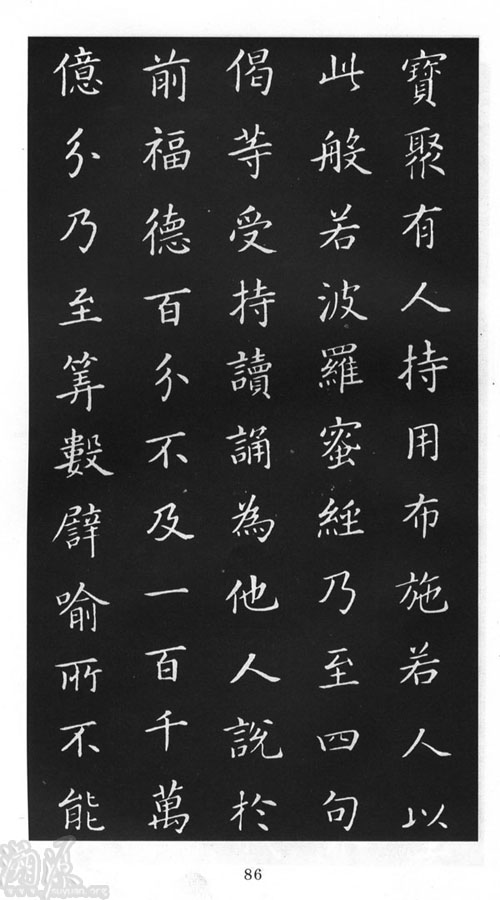 寶聚有人持用布施若人以
此般若波羅蜜經乃至四句
偈等受持讀誦為他人說於
前福德百分不及一百千萬
億分乃至筭數譬喻所不能
86
溯源
suyuan.org